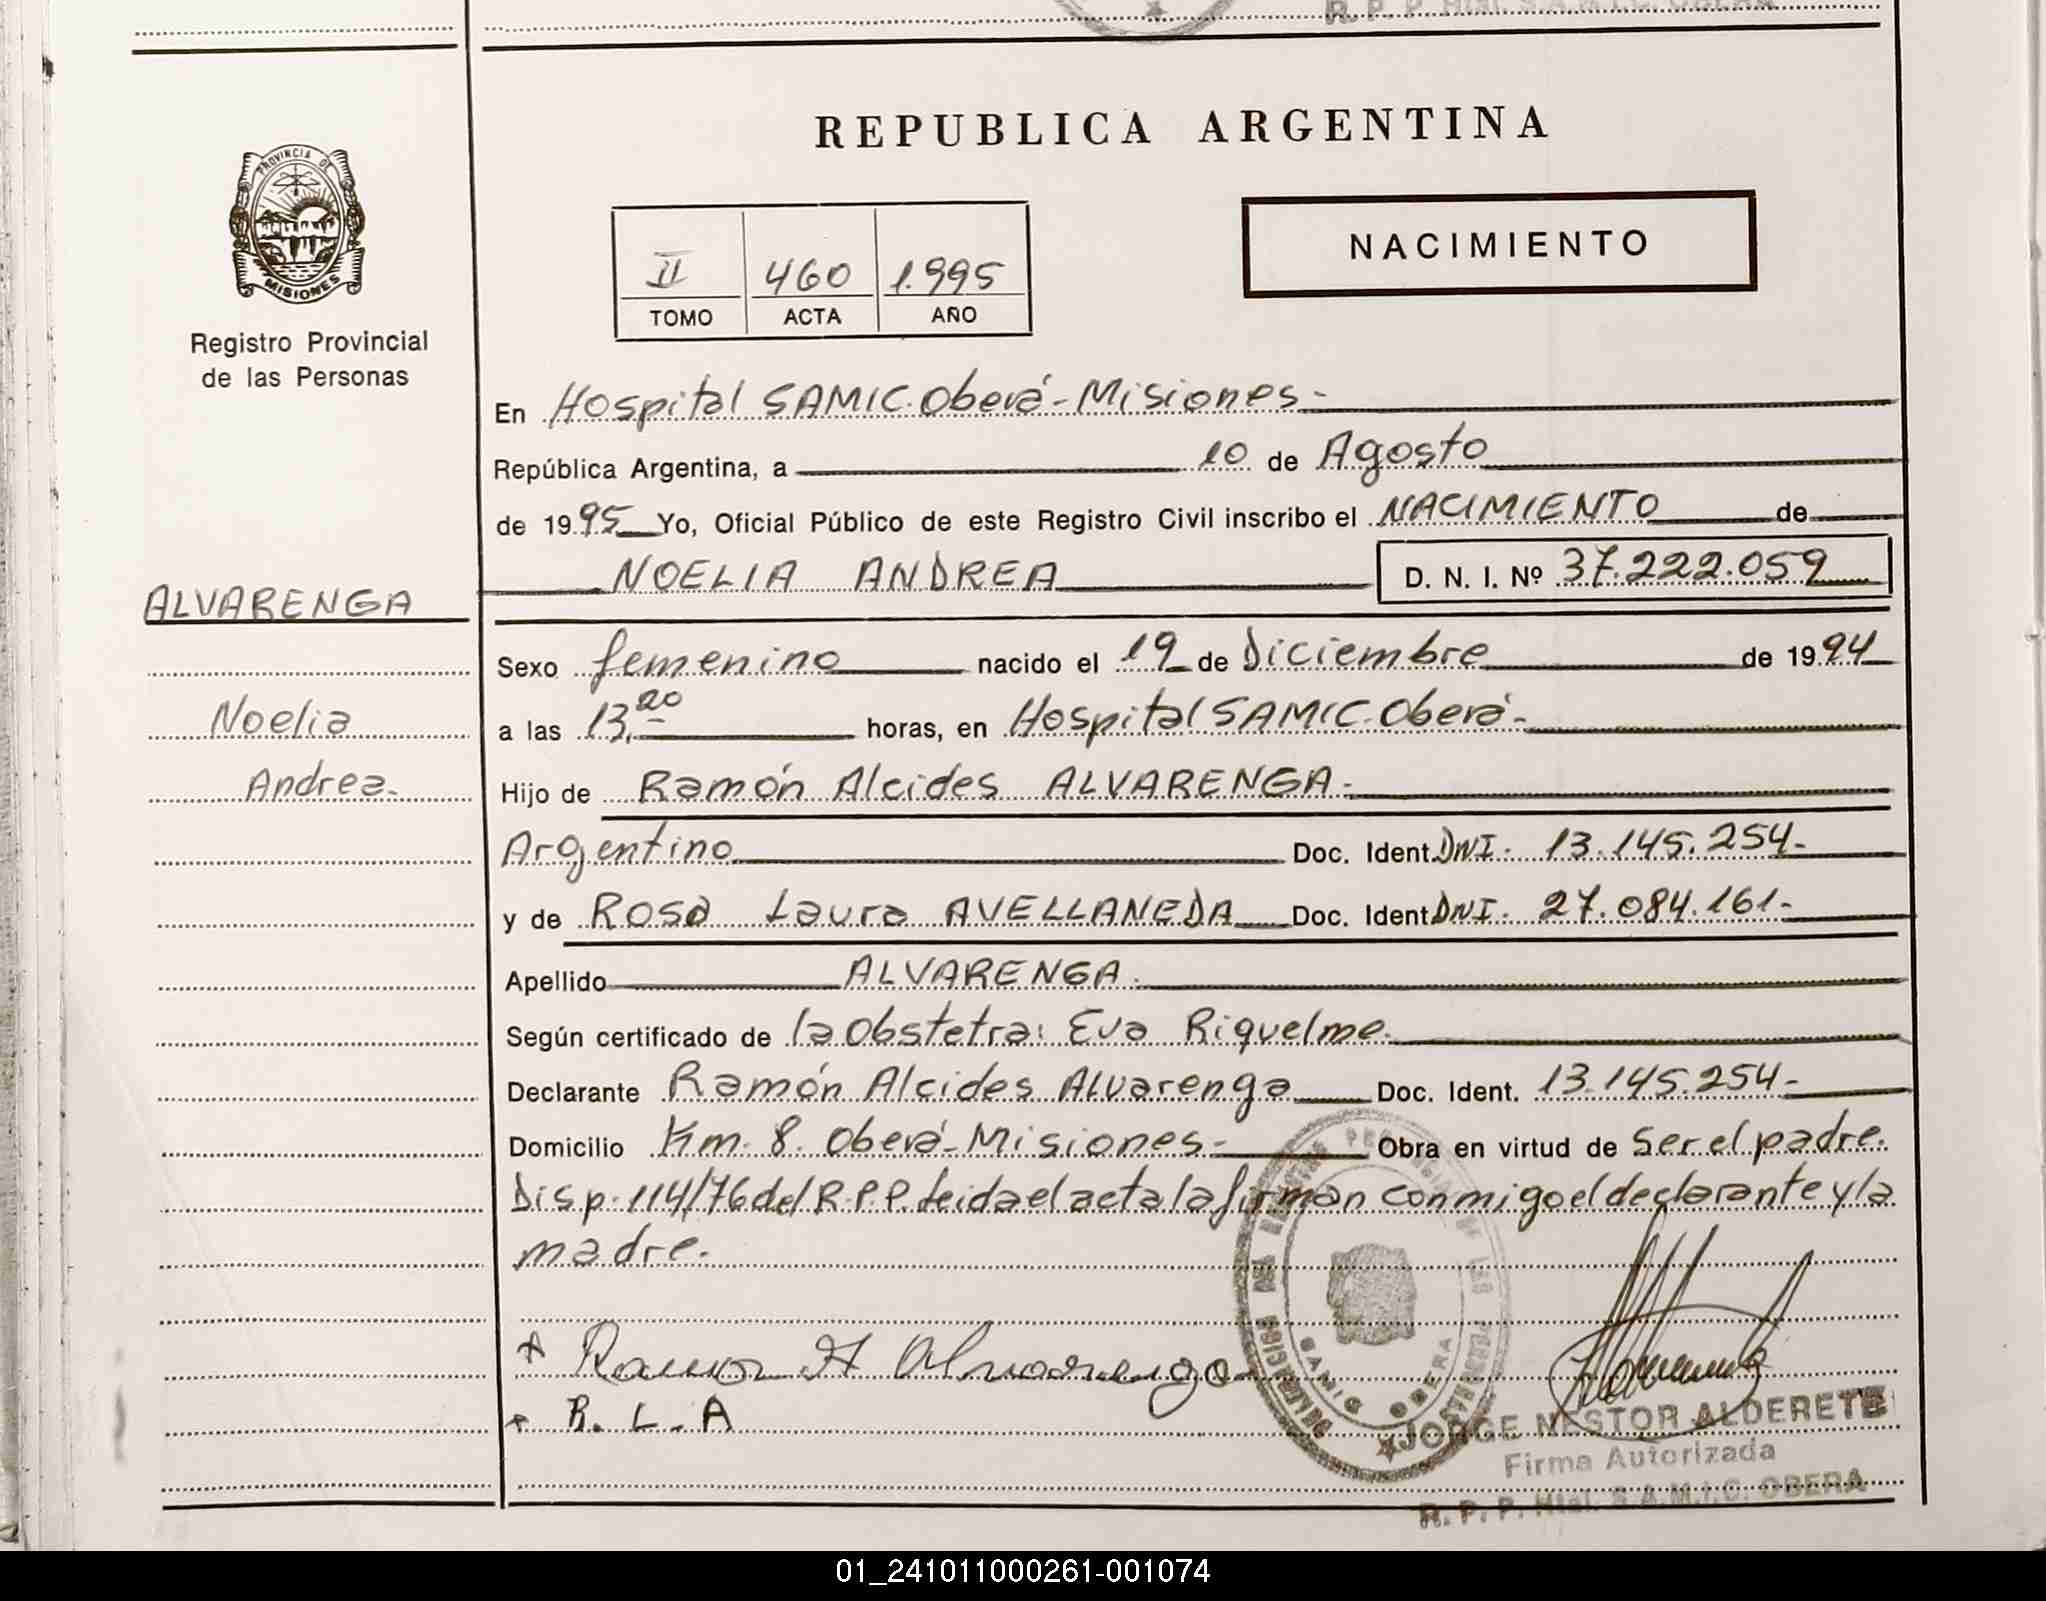 R. P. P. Htal. S.A.M.I.C. OBERA
REPUBLICA ARGENTINA
PROVINCIA DE
MISIONES
Registro Provincial
de las Personas
II 460 1.995
TOMO ACTA AÑO
NACIMIENTO
En Hospital SAMIC. Oberá - Misiones -
República Argentina, a 10 de Agosto
de 1995 Yo, Oficial Público de este Registro Civil inscribo el NACIMIENTO de
NOELIA ANDREA D. N. I. Nº 37.222.059
ALVARENGA
Noelia
Andrea.
Sexo femenino nacido el 19 de Diciembre de 1994
a las 13,20 horas, en Hospital SAMIC. Oberá -
Hijo de Ramón Alcides ALVARENGA -
Argentino Doc. Ident. DNI. 13.145.254-
y de Rosa Laura AVELLANEDA Doc. Ident. DNI. 27.084.161-
Apellido ALVARENGA.
Según certificado de la Obstetra: Eva Riquelme.
Declarante Ramón Alcides Alvarenga Doc. Ident. 13.145.254-
Domicilio Km. 8. Oberá - Misiones - Obra en virtud de Ser el padre.
Disp. 114/76 del R.P.P. Leida el acta la firman conmigo el declarante y la
madre.
Ramon A Alvarenga
R. L. A
SAMIC OBERA
JORGE NESTOR ALDERETE
Firma Autorizada
R. P. P. Htal. S.A.M.I.C. OBERA
01_241011000261-001074